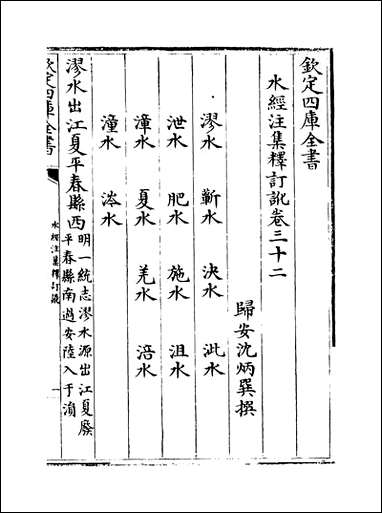 欽定四庫全書
水經注集釋訂訛卷三十二
歸安沈炳巽撰
漻水 蘄水 決水 沘水
泄水 肥水 施水 沮水
漳水 夏水 羌水 涪水
潼水 涔水
漻水出江夏平春縣西
明一統志漻水源出江夏廢
平春縣南過安陸入于溳
欽定四庫全書
水經注集釋訂訛
一